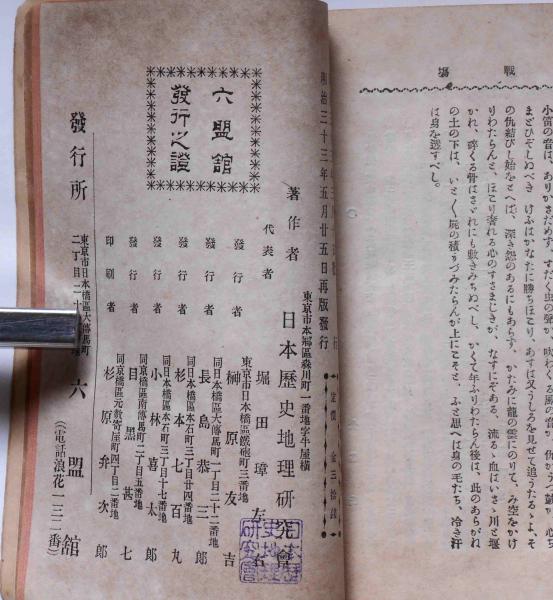 戰場
小笛の音は、ありかさだめず、すだく虫の聲か、吹わく
まどひぞしぬべき けふはかなたに勝ちほこり、あすは又うしろを見せて追うたるゝよ、そ
の仇結びし始をとへば、深き怨のあるにもあらず、かたみに龍の雲にのりて、み空をかけ
りわたらんと、ほこり奢れる心のすさましきが、なすにぞある、流るゝ血はいさゝ川と堰
かれ、碎くる骨はさゞれにも敷きみちぬべし、かくて年ふりわたらん後は、此のあらがね
の土の下は、いとゞ屍の積
上にこそと、ふと思へば身の毛たち、冷き汗
は身を透すべし。
明治三十三年五月廿五日再版發行
定價金三拾錢
六盟舘
發行之證
著作者
東京市本郷區森川町一番地宮裏橫
日本歷史地理研究會
代表者
堀田璋左右
東京市日本橋區鐵砲町三番地
發行者
榊原友吉
同日本橋區大傳馬町一丁目二十二番地
發行者
長島恭三郎
同日本橋區本石町三丁目廿四番地
發行者
杉本七百丸
同日本橋區本石町三丁目十七番地
發行者
小林喜太郎
同京橋區南傳馬町二丁目五番地
發行者
目黑甚七
同京橋區元數寄屋町四丁目二番地
印刷者
杉原弁次郎
發行所
東京市日本橋區大傳馬町
二丁目二十
六盟舘
(電話浪花一三二番)
日本歷
史地理
研究會